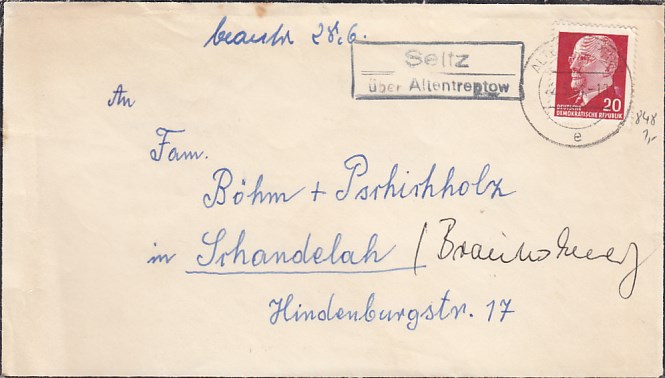 beantw 28.6.
Seltz
über Altentreptow
20
DEUTSCHE
DEMOKRATISCHE REPUBLIK
e
848
An
Fam.
Böhm + Pschichholz
in Schandelah / Braunschweig
Hindenburgstr. 17